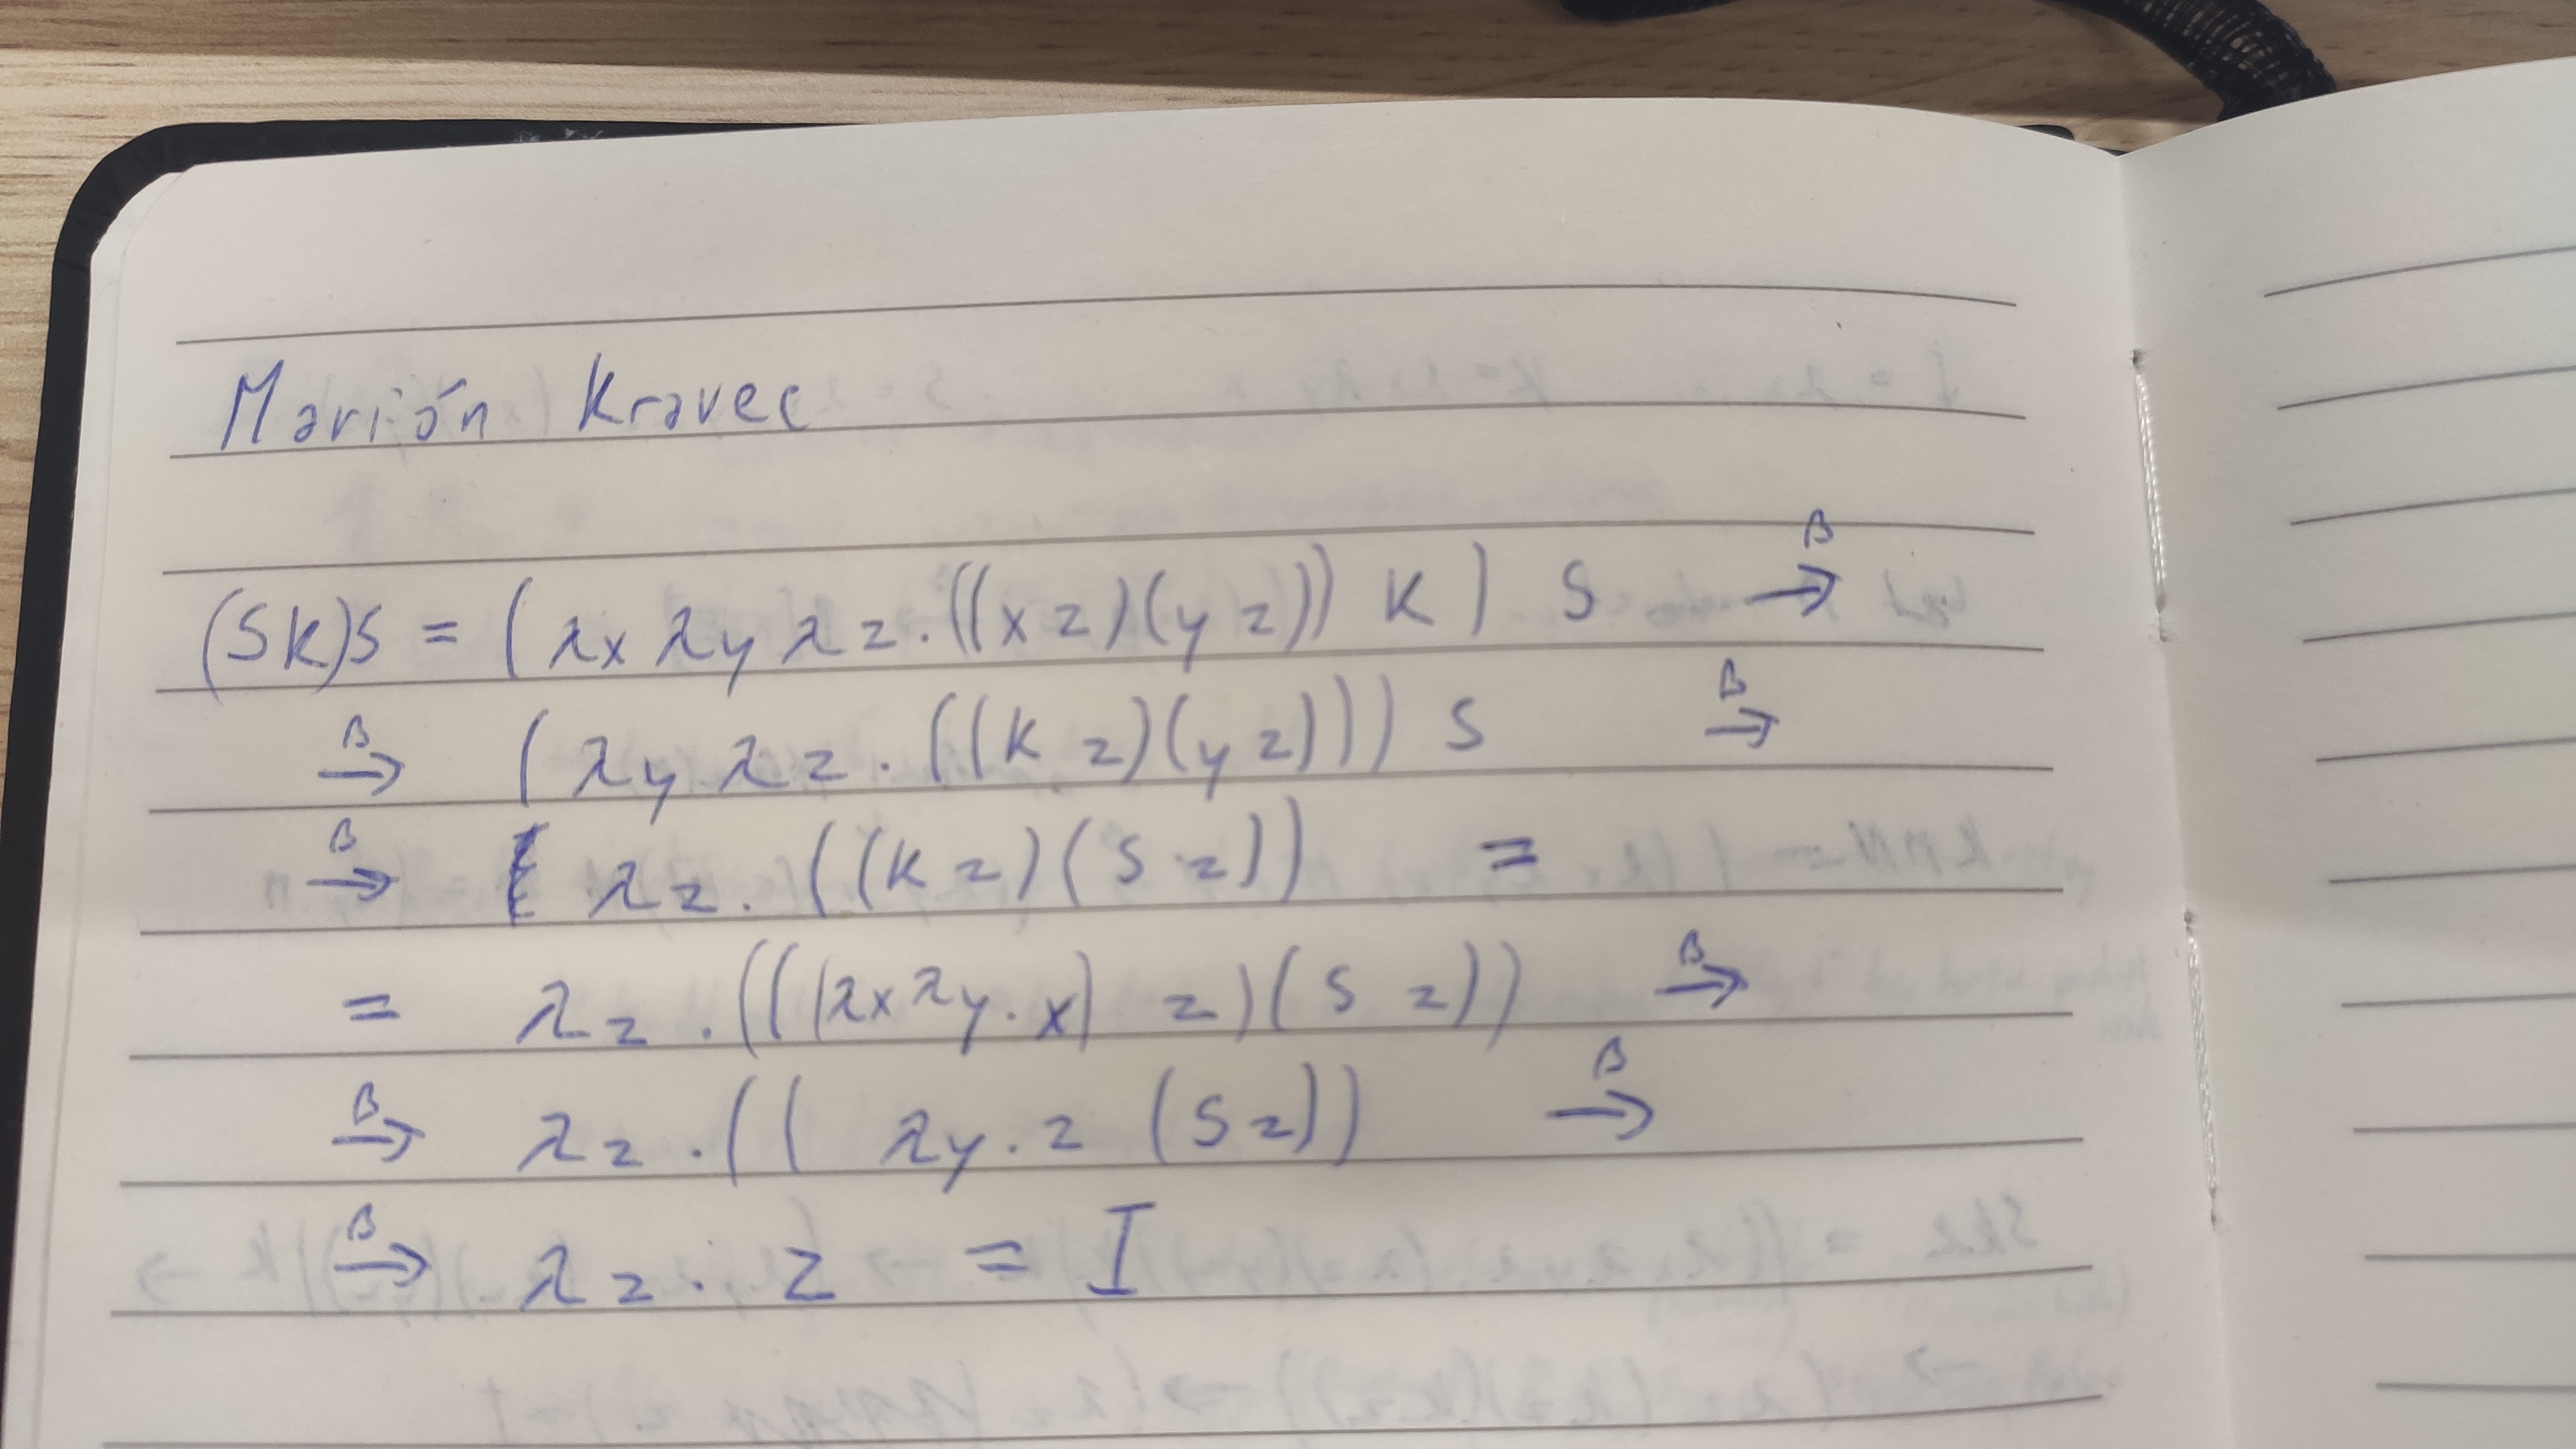 Marión Kravec
(SK)S = (λxλyλz.((xz)(yz)) K) S →β
→β (λyλz.((K z)(yz))) S →β
→β λz.((K z)(S z)) =
= λz.(((λxλy.x) z)(S z)) →β
→β λz.(( λy.z (Sz)) →β
→β λz.z = I